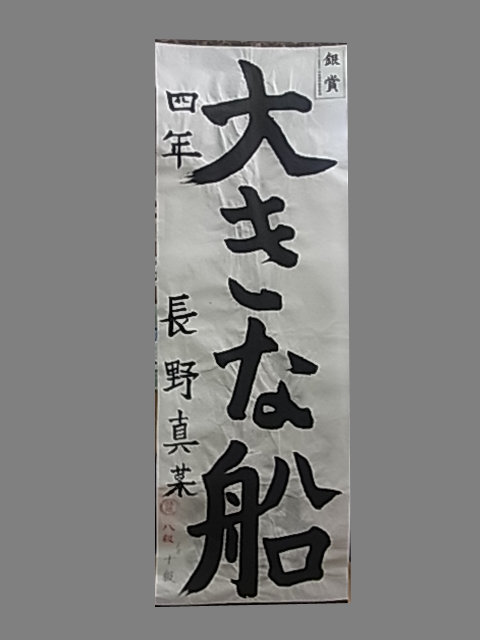 銀賞
大きな船
四年 長野真菜
八級
十級